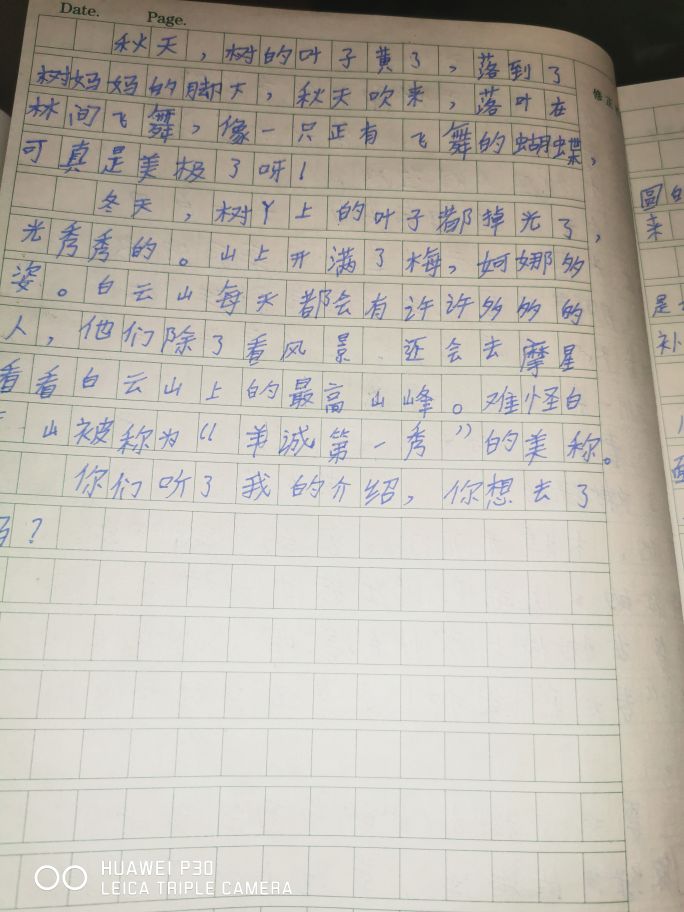 Date. Page.
秋天，树的叶子黄了，落到了
树妈妈的脚下，秋天吹来，落叶在
林间飞舞，像一只正有飞舞的蝴蝶，
可真是美极了呀！
冬天，树丫上的叶子都掉光了，
光秀秀的。山上开满了梅，婀娜多
姿。白云山每天都会有许许多多的
人，他们除了看风景 还会去摩星
看看白云山上的最高山峰。难怪白
山被称为“羊诚第一秀”的美称。
你们听了我的介绍，你想去了
吗？
修正
圆
来
是
补
HUAWEI P30
LEICA TRIPLE CAMERA